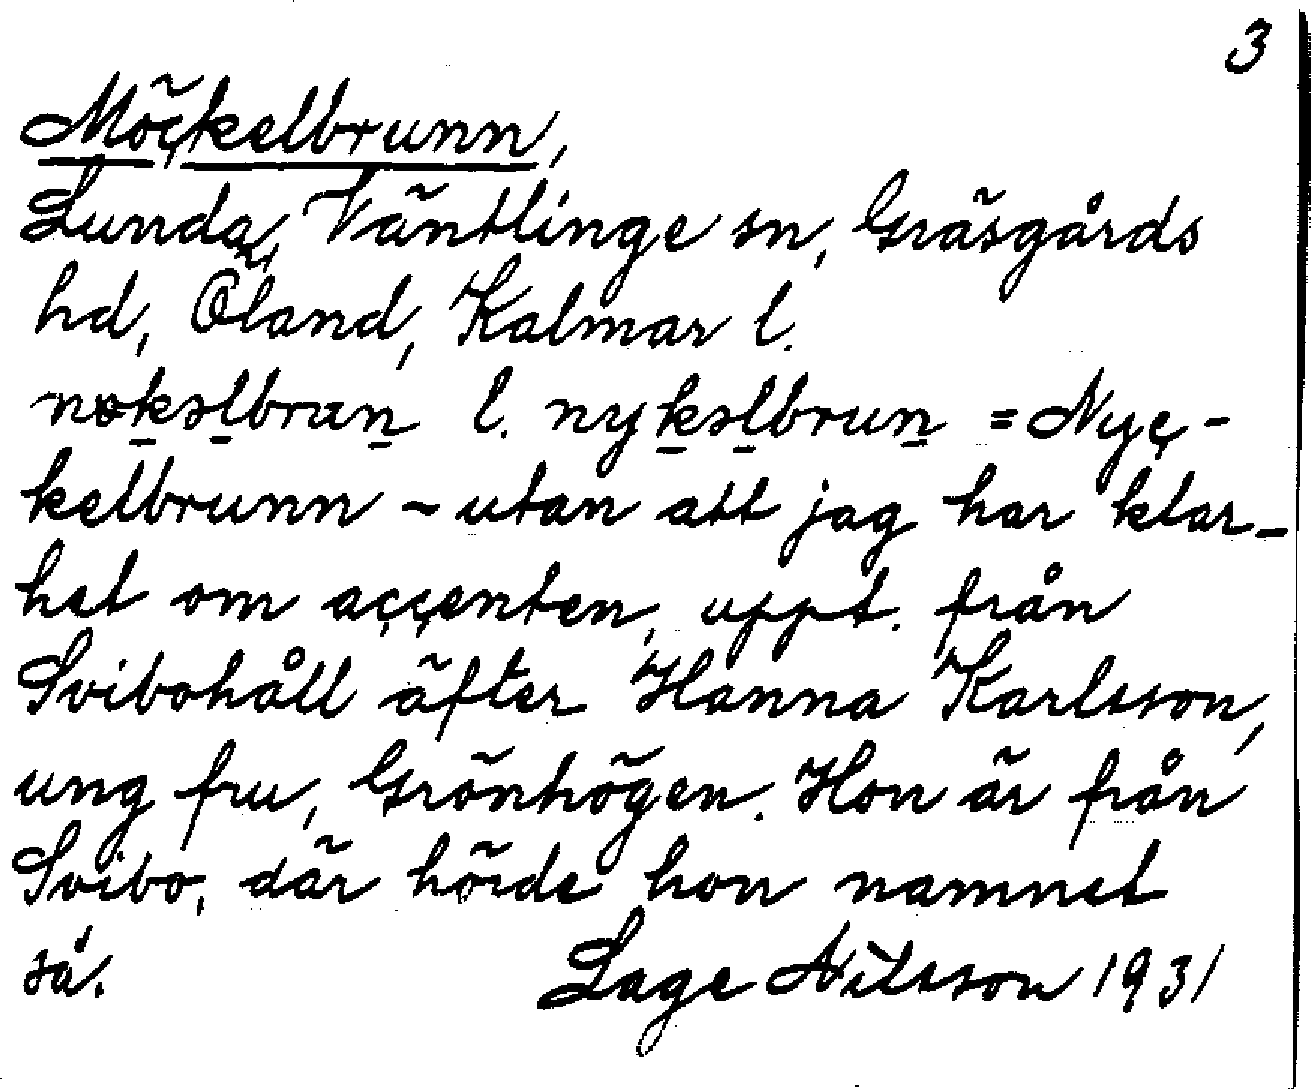 3
Möckelbrunn,
Lunda, Väntlinge sn, Gräsgårds
hd, Öland, Kalmar l.
nɵkəlbrɯn l. nykəlbrun = Nyc-
kelbrunn ~ utan att jag har klar-
het om accenten, uppt. från
Svibohåll äfter Hanna Karlsson,
ung fru, Grönhögen. Hon är från
Svibo, där hörde hon namnet
så. Lage Nilsson 1931